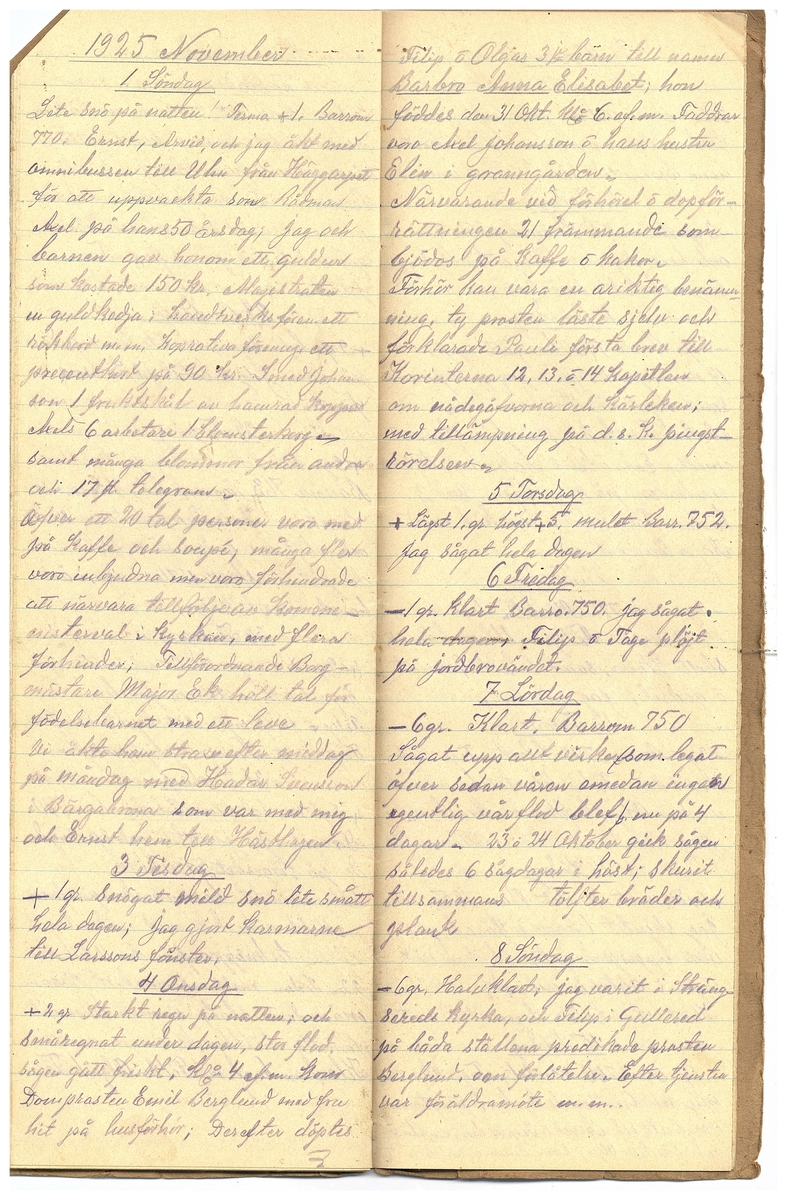 1925 November
1. Söndag
Lite snö på natten! Term +1. Barrom
770. Ernst, Arvid, och jag åkt med
omnibussen till Uhn från Häggarpet
för att uppvackta som Rådman
Axel på hans 50 årsdag; jag och
barnen gav honom ett guldur
som kostade 150 kr. Majestratten
en guldkedja; handtverksfören. ett
rökbord m.m. Koprativa föreninge ett
precentkort på 90 kr. Smed Johan
son 1 fruktskål av hamrat koppar
Axels 6 arbetare 1 blomsterkorg
samt många blommor från andra
och 17 st. telegram.
Öfver ett 20 tal personer voro med
på Kaffe och soupé, många fler
voro inbjudna men voro förhindrade
att närvara tillföljе an Komi-
nisterval i Kyrkan, med flera
förhinder; Tillförordnande Borg-
mästare Major Ek höll tal för
födelsebarnet med ett leve
Vi åkte hem strax efter middag
på måndag med Hadar Svensson
i Bärgabrona som var med mig
och Ernst hem till Hästhagen.
3 Tisdag
+ 1 gr. snögat mild snö lite smått
hela dagen; jag gjort karmarne
till Larssons fönster.
4 Onsdag
+2 gr. Starkt regn på natten; och
småregnat under dagen, stor flod,
sågen gått friskt, Klo 4 ef.m. kom
Domprosten Emil Berglund med fru
hit på husförhör; Derefter döptes
Filip o Olgas 3dje barn till namn
Barbro Anna Elisabet; hon
föddes den 31 Okt. Klo 6. ef.m. Faddrar
voro Axel Johansson o hans hustru
Elin i granngården.
Närvarande vid förhöret o dopför-
rättningen 21 främmande som
bjödos på Kaffe o kakor.
Förhör kan vara en oriktig benäm-
ning, ty prosten läste sjelv och
förklarade Pauli första brev till
Korinterna 12, 13, o 14 Kapitlen
om nådegåfvorna och Kärleken;
med tillämpning på d.s.k. pingst-
rörelsen.
5 Torsdag
+ Lägst 1. gr. högst +5. mulet Barr. 752.
jag sågat hela dagen
6 Fredag
-1 gr. klart Barro. 750. jag sågat
hela dagen, Filip o Tage plöjt
på jordbrovändet.
7 Lördag
-6 gr. Klart. Barrom 750
Sågat upp allt virke (som legat
öfver sedan våren emedan ingen
egentlig vårflod blef) nu på 4
dagar. 23 o 24 Oktober gick sågen
således 6 sågdagar i höst; skurit
tillsammans tolfter bräder och
plank
8 Söndag
-6 gr. Halvklart; jag varit i Sträng
sereds kyrka, och Filip i Gullered
på båda ställena predikade prosten
Berglund, om förlåtelse. Efter tjensten
var föräldramöte m.m..